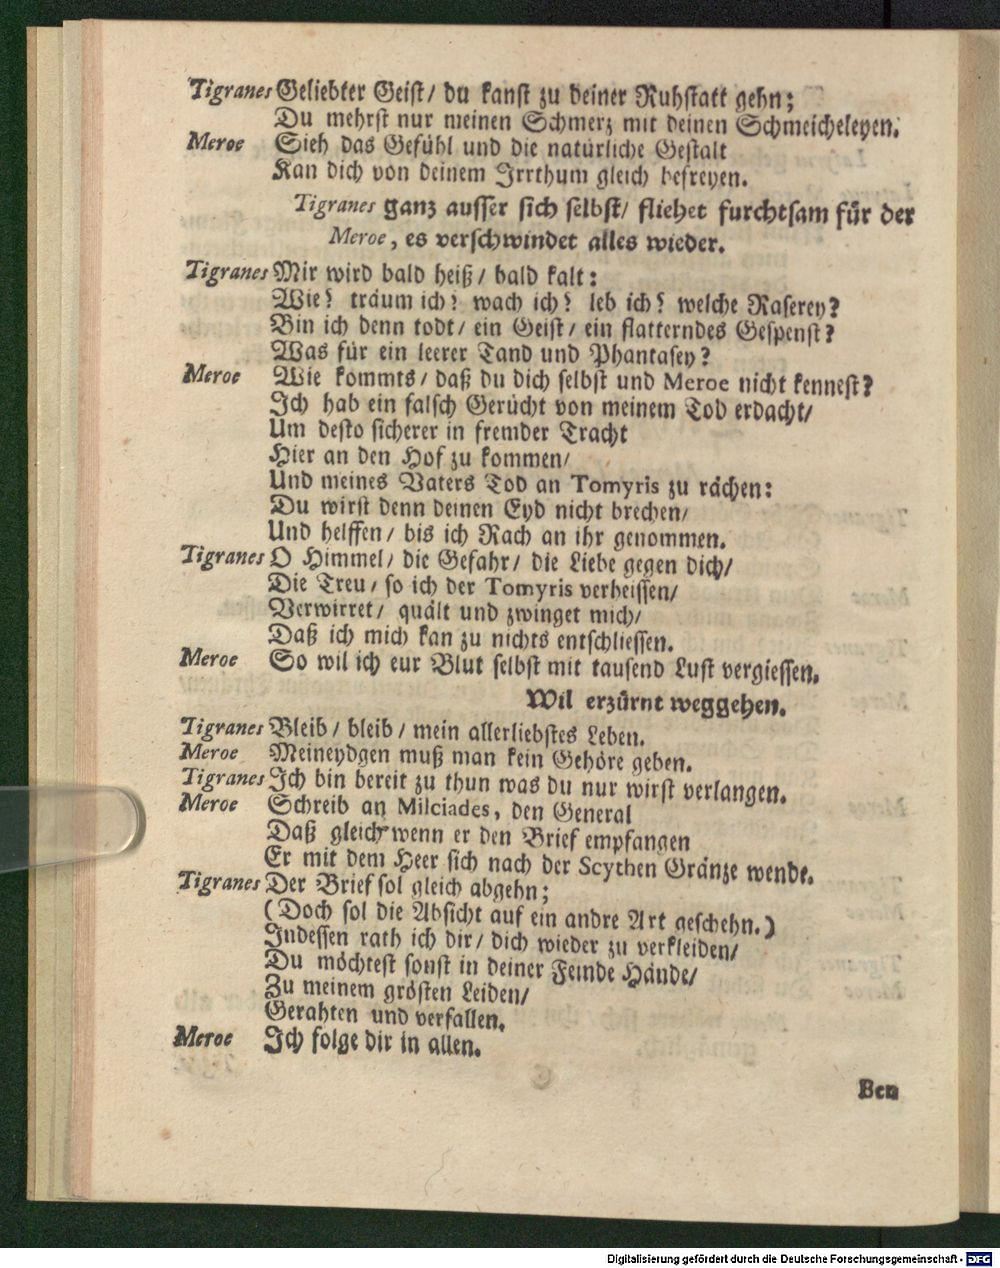 Tigranes Geliebter Geist/ du kanst zu deiner Ruhstatt gehn;
Du mehrst nur meinen Schmerz mit deinen Schmeicheleyen.
Meroe Sieh das Gefühl und die natürliche Gestalt
Kan dich von deinem Irrthum gleich befreyen.
Tigranes ganz ausser sich selbst/ fliehet furchtsam für der
Meroe, es verschwindet alles wieder.
Tigranes Mir wird bald heiß/ bald kalt:
Wie? träum ich? wach ich? leb ich? welche Raserey?
Bin ich denn todt/ ein Geist/ ein flatterndes Gespenst?
Was für ein leerer Tand und Phantasey?
Meroe Wie kommts/ daß du dich selbst und Meroe nicht kennest?
Ich hab ein falsch Gerücht von meinem Tod erdacht/
Um desto sicherer in fremder Tracht
Hier an den Hof zu kommen/
Und meines Vaters Tod an Tomyris zu rächen:
Du wirst denn deinen Eyd nicht brechen/
Und helffen/ bis ich Rach an ihr genommen.
Tigranes O Himmel/ die Gefahr/ die Liebe gegen dich/
Die Treu/ so ich der Tomyris verheissen/
Verwirret/ quält und zwinget mich/
Daß ich mich kan zu nichts entschliessen.
Meroe So wil ich eur Blut selbst mit tausend Lust vergiessen.
Wil erzürnt weggehen.
Tigranes Bleib/ bleib/ mein allerliebstes Leben.
Meroe Meineydgen muß man kein Gehöre geben.
Tigranes Ich bin bereit zu thun was du nur wirst verlangen.
Meroe Schreib an Milciades, den General
Daß gleich wenn er den Brief empfangen
Er mit dem Heer sich nach der Scythen Gränze wende.
Tigranes Der Brief sol gleich abgehn;
(Doch sol die Absicht auf ein andre Art geschehn.)
Indessen rath ich dir/ dich wieder zu verkleiden/
Du möchtest sonst in deiner Feinde Hände/
Zu meinem grösten Leiden/
Gerahten und verfallen.
Meroe Ich folge dir in allen.
Ben
Digitalisierung gefördert durch die Deutsche Forschungsgemeinschaft - DFG